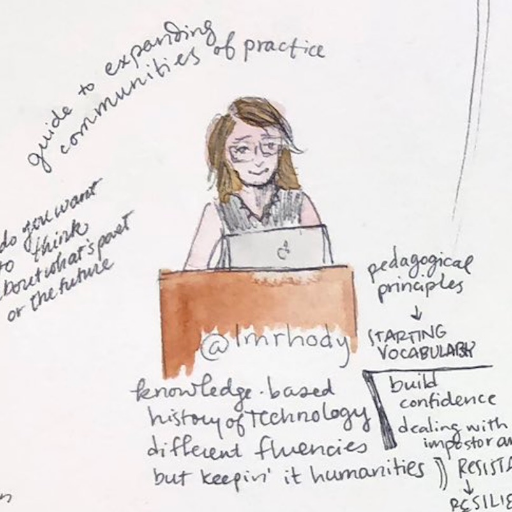 guide to expanding
communities of practice
do you want
to think
about what's past
or the future
pedagogical
principles
↓
STARTING
VOCABULARY
@lmrhody
build
confidence
dealing with
impostor
knowledge-based
history of Technology
different fluencies
but keepin' it humanities
RESIST
↓
RESILIE